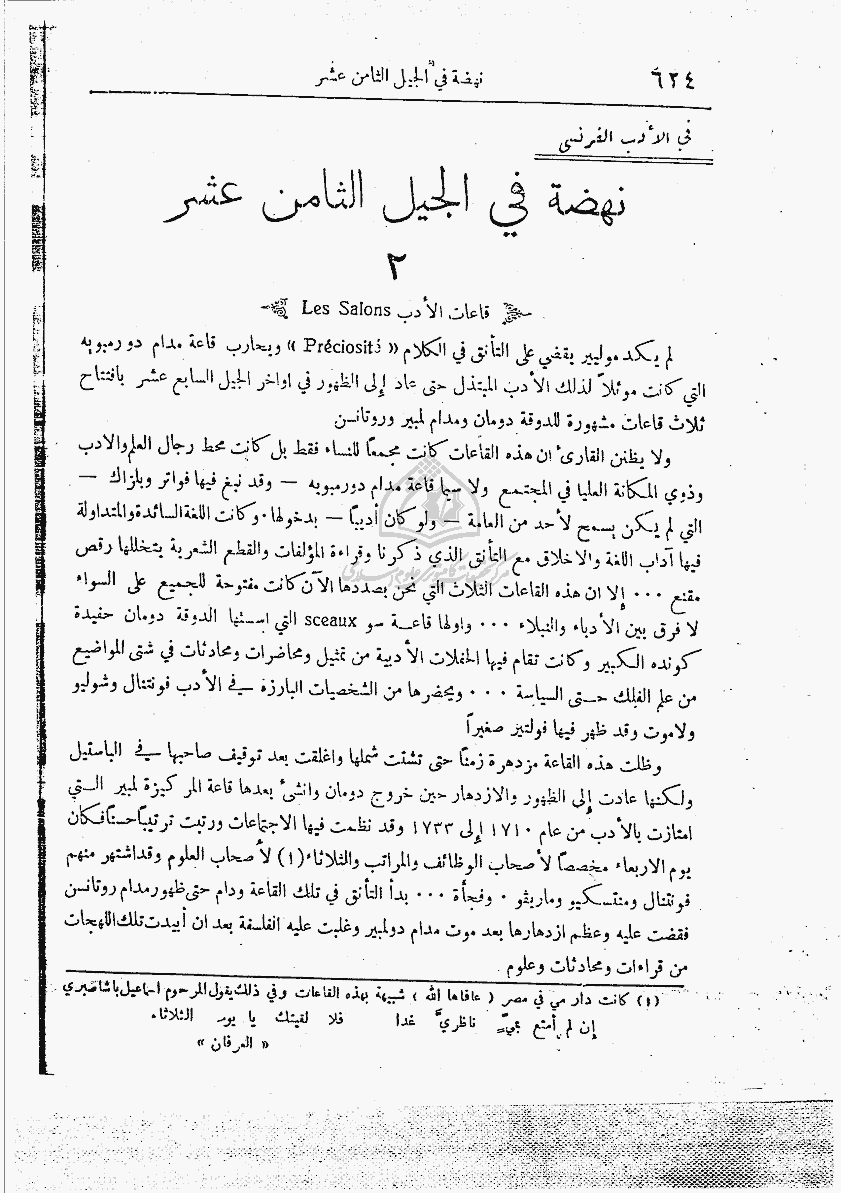 ٦٢٤
نهضة في الجيل الثامن عشر
في الأدب الفرنسي
نهضة في الجيل الثامن عشر
٢
قاعات الأدب Les Salons
لم يكد موليير يقضي على التأنق في الكلام « Préciosité » ويحارب قاعة مدام دو رمبويه
التي كانت موئلاً لذلك الأدب المبتذل حتى عاد إلى الظهور في اواخر الجيل السابع عشر بافتتاح
ثلاث قاعات مشهورة للدوقة دومان ومدام لمبير وروتانسن
ولا يظنن القارئ ان هذه القاعات كانت مجمعاً للنساء فقط بل كانت محط رجال العلم والادب
وذوي المكانة العليا في المجتمع ولا سيما قاعة مدام دورمبويه – وقد نبغ فيها فواتر وبلزاك –
التي لم يكن يسمح لأحد من العامة – ولو كان أديباً – بدخولها٠ وكانت اللغة السائدة والمتداولة
فيها آداب اللغة والاخلاق مع التأنق الذي ذكرنا وقراءة المؤلفات والقطع الشعرية يتخللها رقص
مقنع ٠٠٠ إلا ان هذه القاعات الثلاث التي نحن بصددها الآن كانت مفتوحة للجميع على السواء
لا فرق بين الأدباء والنبلاء ٠٠٠ واولها قاعة سو sceaux التي اسستها الدوقة دومان حفيدة
كونده الكبير وكانت تقام فيها الحفلات الأدبية من تمثيل ومحاضرات ومحادثات في شتى المواضيع
من علم الفلك حتى السياسة ٠٠٠ ويحضرها من الشخصيات البارزة في الأدب فونتنال وشوليو
ولاموت وقد ظهر فيها فولتير صغيراً
وظلت هذه القاعة مزدهرة زمناً حتى تشتت شملها واغلقت بعد توقيف صاحبها في الباستيل
ولكنها عادت إلى الظهور والازدهار حين خروج دومان وانشئ بعدها قاعة المركيزة لمبير التي
امتازت بالأدب من عام ١٧١٠ إلى ١٧٣٣ وقد نظمت فيها الاجتماعات ورتبت ترتيباً حسناً فكان
يوم الاربعاء مخصصاً لأصحاب الوظائف والمراتب والثلاثاء (١) لأصحاب العلوم وقد اشتهر منهم
فونتنال ومنتسكيو وماريفو ٠ وفجأة ٠٠٠ بدأ التأنق في تلك القاعة ودام حتى ظهور مدام روتانسن
فقضت عليه وعظم ازدهارها بعد موت مدام دولمبير وغلبت عليه الفلسفة بعد ان أبيدت تلك اللهجات
من قراءات ومحادثات وعلوم
(١) كانت دار مي في مصر ( عافاها الله ) شبيهة بهذه القاعات وفي ذلك يقول المرحوم اسماعيل باشا صبري
إن لم أمتع بميّ ناظريّ غدا فلا لقيتك يا يوم الثلاثاء
« العرفان »